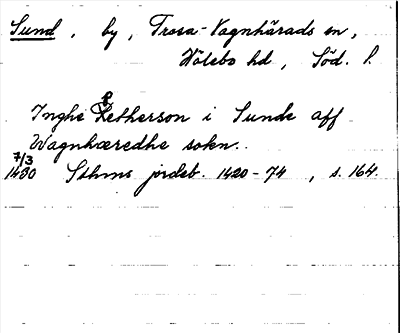 Sund, by, Trosa-Vagnhärads sn,
Hölebo hd, Söd. l.
Inghe Petherson i Sunde aff
Wagnhæredhe sokn.
7/3
1430 Sthms jordeb. 1420-74, s. 164.